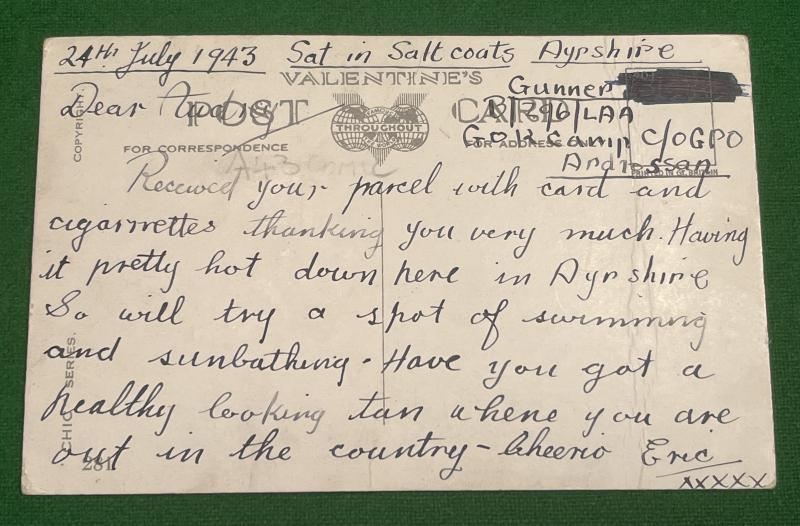 24th July 1943 Sat in Saltcoats Ayrshire
VALENTINE'S
POST CARD
THROUGHOUT
FOR CORRESPONDENCE
FOR ADDRESS ONLY
COPYRIGHT.
Dear
Gunner
/LAA
Camp C/O GPO
Ardrossan
Received your parcel with card and
cigarrettes thanking you very much. Having
it pretty hot down here in Ayrshire
So will try a spot of swimming
and sunbathing - Have you got a
healthy looking tan where you are
out in the country - Cheerio Eric
XXXXX
SERIES.
281